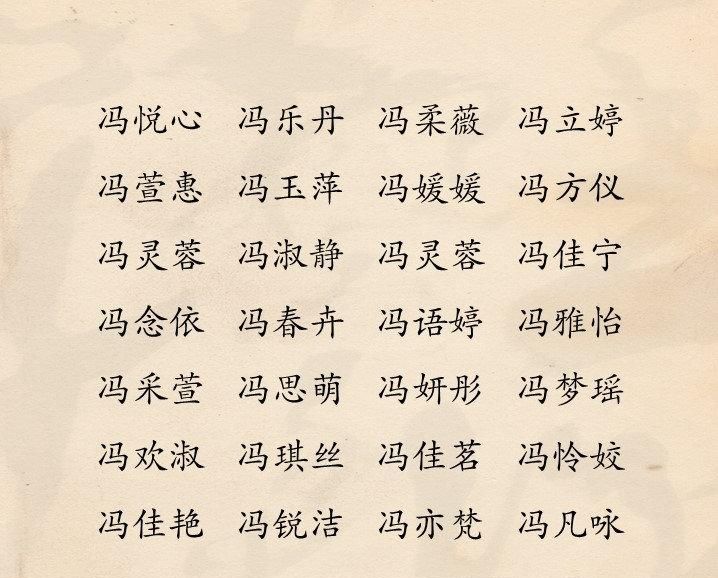 冯悦心 冯乐丹 冯柔薇 冯立婷
冯萱惠 冯玉萍 冯媛媛 冯方仪
冯灵蓉 冯淑静 冯灵蓉 冯佳宁
冯念依 冯春卉 冯语婷 冯雅怡
冯采萱 冯思萌 冯妍彤 冯梦瑶
冯欢淑 冯琪丝 冯佳茗 冯怜姣
冯佳艳 冯锐洁 冯亦梵 冯凡咏